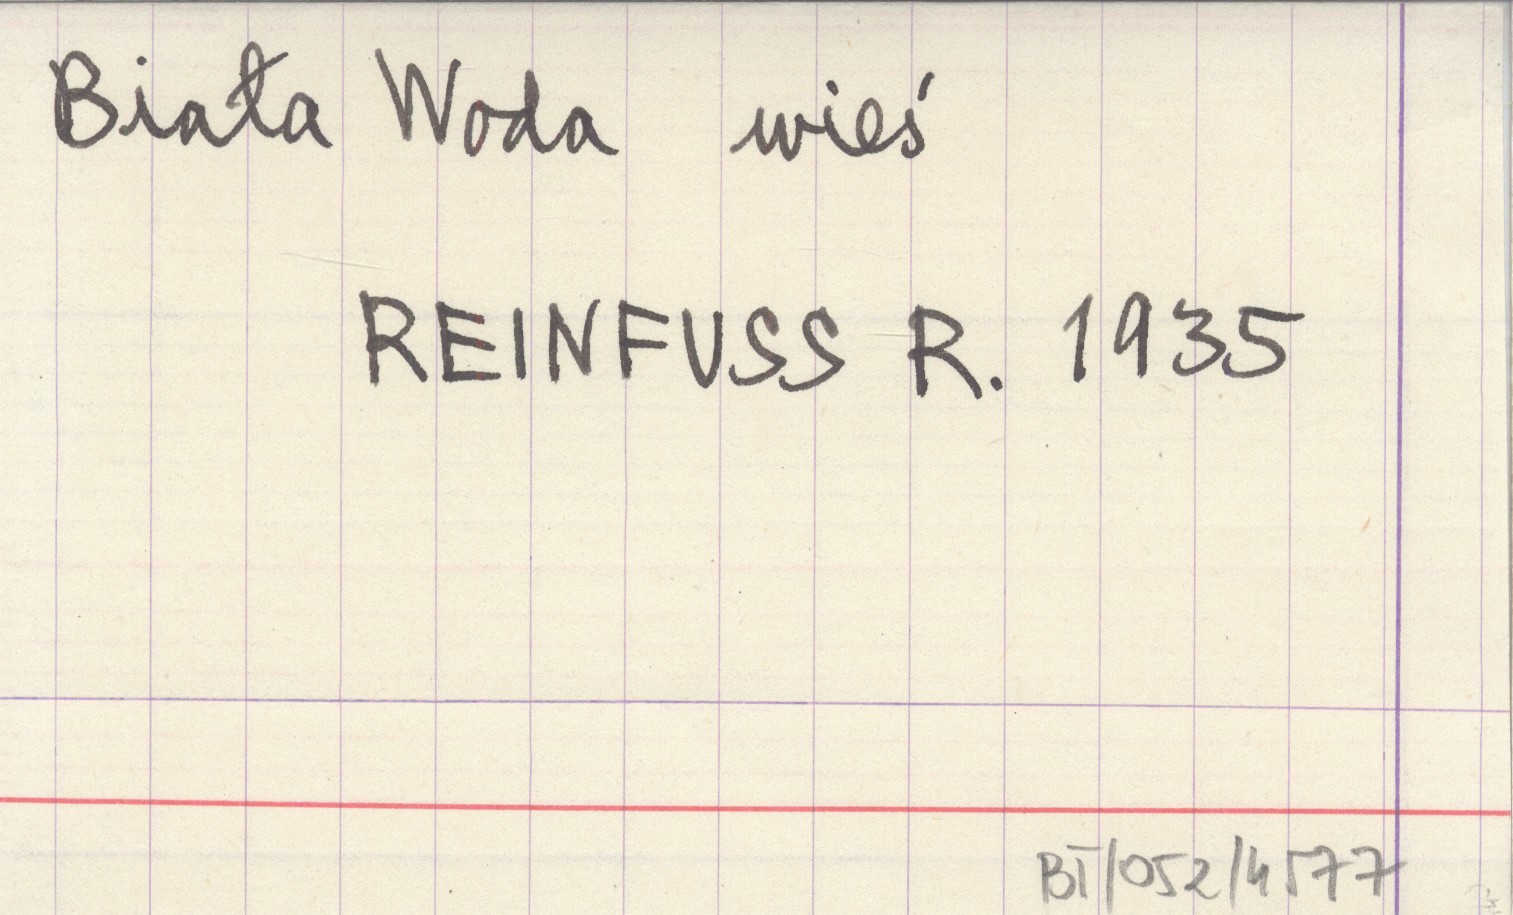 Biała Woda wieś
REINFUSS R. 1935
BT/052/4577